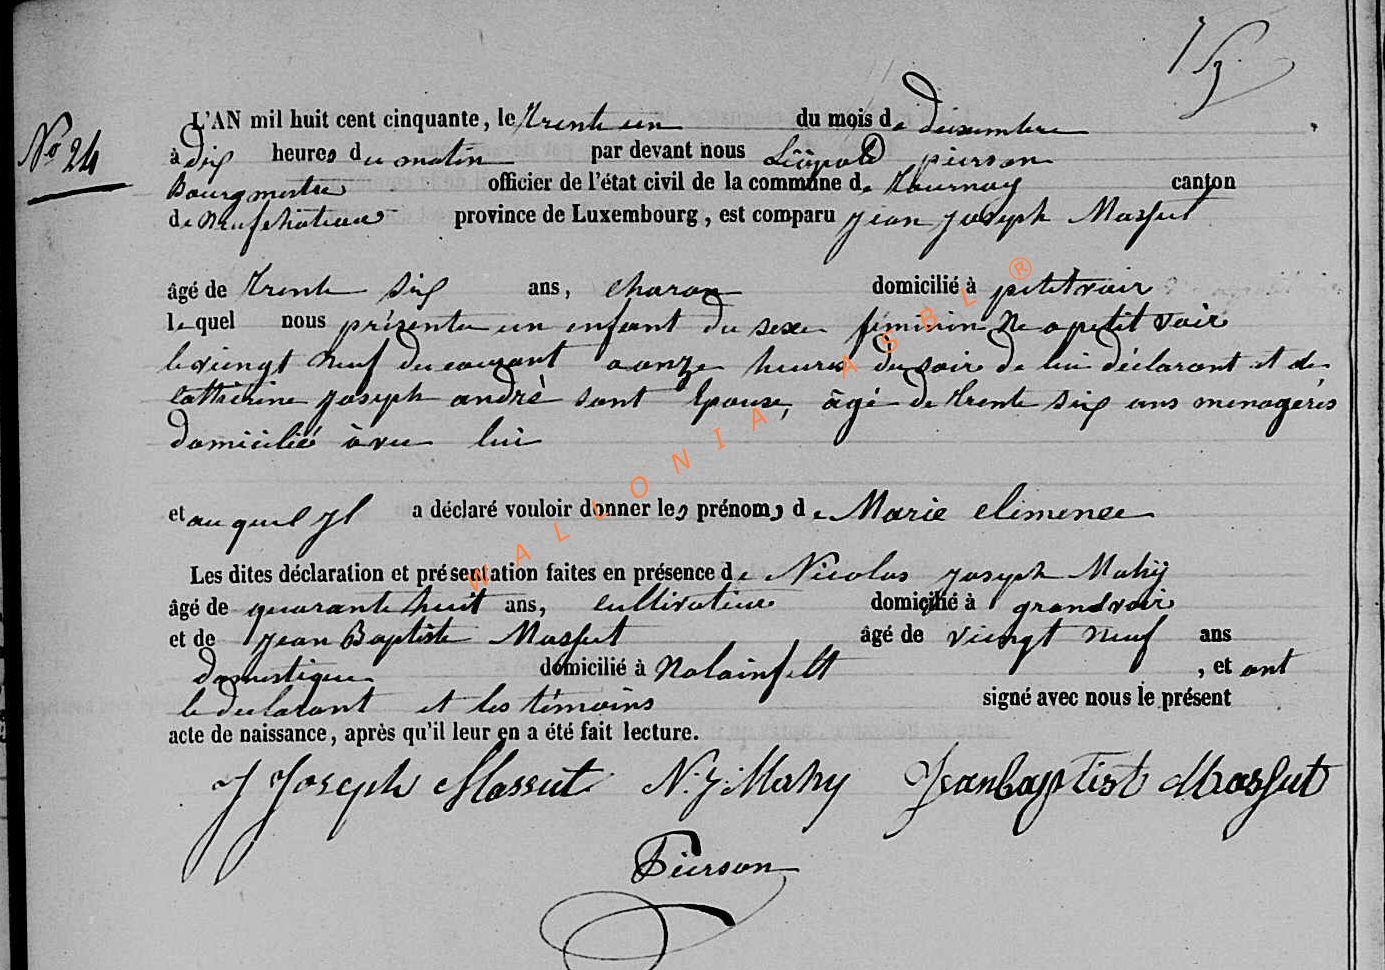 No 24
L'AN mil huit cent cinquante, le trente un du mois de décembre
à dix heures du matin par devant nous Léopold pierson
Bourgmestre officier de l'état civil de la commune de tournay canton
de neufchateau province de Luxembourg, est comparu jean joseph Massut
âgé de trente six ans, charon domicilié à petitvoir
le quel nous présente un enfant du sexe féminin Ne a petit voir
le viengt neuf du courant a onze heures du soir de lui déclarant et de
catthérine joseph andré sont Epouse, âgé de trente six ans menagères
domicilié àvec lui
et au quel jl a déclaré vouloir donner les prénoms de Marie climence
Les dites déclaration et présentation faites en présence de Nicolas joseph Mahij
âgé de quarante huit ans, cultivateur domicilié à grandvoir
et de jean Baptiste Massut âgé de viengt neuf ans
domestique domicilié à Nolainfalt , et ont
le declarant et les témoins signé avec nous le présent
acte de naissance, après qu'il leur en a été fait lecture.
J Joseph Massut N. J Mahy Jean baptist Massut
Pierson
WALLONIA ASBL ®